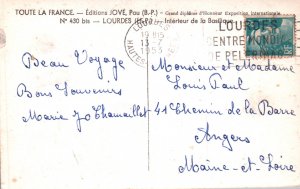 TOUTE LA FRANCE. — Éditions JOVÉ, Pau (B.-P.) — Grand diplôme d'Honneur Exposition internationale
N° 430 bis — LOURDES (H.-P.) — Intérieur de la Basilique
LOURDES
19 H 15
13 - 7
1953
HAUTES
LOURDES
CENTRE MONDIAL
DE PELERINAGE
Beau Voyage
Bons Souvenirs
Marie Jo Thomaillet
Monsieur et Madame
Louis Paul
41 Chemin de la Barre
Angers
Maine-et-Loire